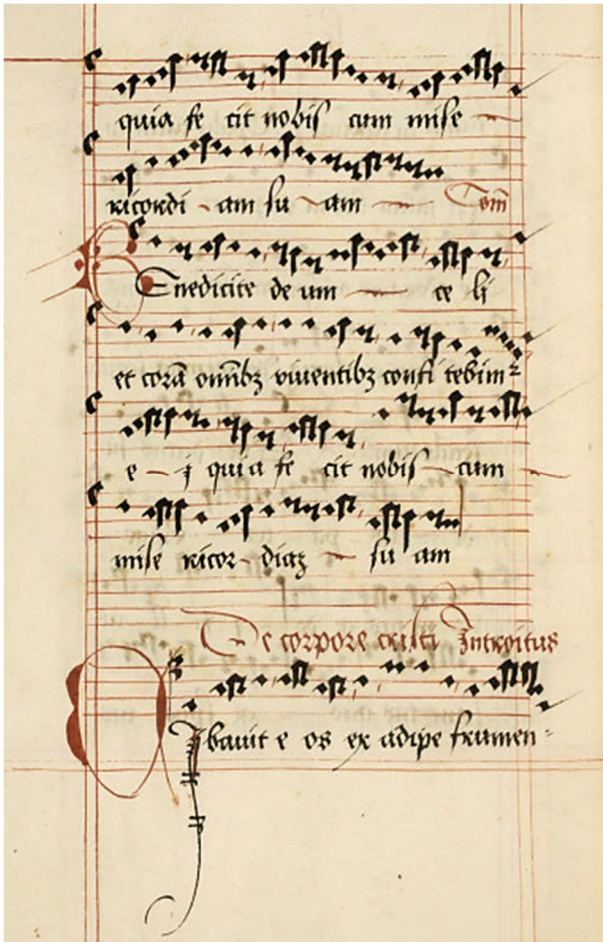 quia fe cit nobis cum mise
ricordi am su am Com̄
Benedicite de um ce li
et corā om̄ibꝫ viventibꝫ confi tebimꝰ
e i quia fe cit nobis cum
mise ricor diaꝫ su am
De corpore cristi Introitus
Cibavit e os ex adipe frumen